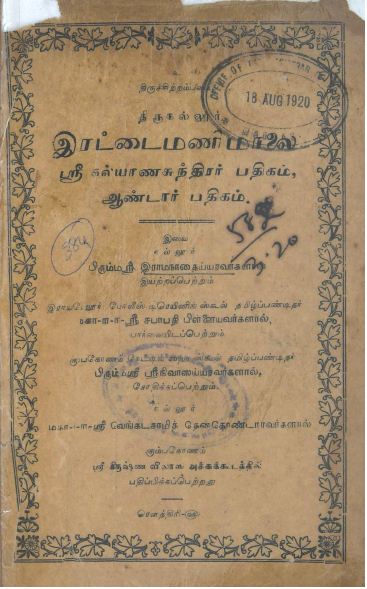 உ
திருச்சிற்றம்பலம்
திருநல்லூர்
இரட்டைமணிமாலை
ஸ்ரீ கல்யாணசுந்தரர் பதிகம்,
ஆண்டார் பதிகம்.
OFFICE OF
18 AUG 1920
MADRAS
இவை
நல்லூர்
பிரும்மஸ்ரீ இராமநாதைய்யரவர்களால்
இயற்றப்பெற்றும்
போலீஸ் டிரெயினிங் ஸ்கூல் தமிழ்ப்பண்டிதர்
ம-ள-ள-ஸ்ரீ சபாபதி பிள்ளையவர்களால்,
பார்வையிடப்பெற்றும்
கும்பகோணம் ஸ்கூல் தமிழ்ப்பண்டிதர்
பிரும்மஸ்ரீ ஸ்ரீநிவாஸய்யரவர்களால்,
சோதிக்கப்பெற்றும்,
நல்லூர்
மகா-ள-ள-ஸ்ரீ வேங்கடசாமித் தேன்கொண்டாரவர்களால்
கும்பகோணம்
ஸ்ரீ கிருஷ்ண விலாஸ அச்சுக்கூடத்தில்
பதிப்பிக்கப்பெற்றது
ரௌத்திரி